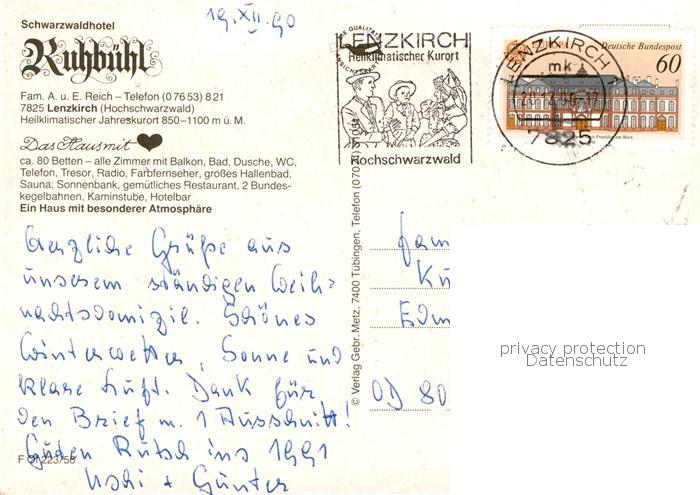 19. XII. 90
Schwarzwaldhotel
Ruhbühl
Fam. A. u. E. Reich – Telefon (0 76 53) 8 21
7825 Lenzkirch (Hochschwarzwald)
Heilklimatischer Jahreskurort 850–1100 m ü. M.
Das Haus mit
ca. 80 Betten – alle Zimmer mit Balkon, Bad, Dusche, WC,
Telefon, Tresor, Radio, Farbfernseher, großes Hallenbad,
Sauna, Sonnenbank, gemütliches Restaurant, 2 Bundes-
kegelbahnen, Kaminstube, Hotelbar
Ein Haus mit besonderer Atmosphäre
Herzliche Grüße aus
unserem ständigen Weih=
nachtsdomizil. Schönes
Winterwetter, Sonne und
klare Luft. Dank für
den Brief m. 1 Ausschnitt!
Guten Rutsch ins 1991
Uschi + Günter
© Verlag Gebr. Metz, 7400 Tübingen, Telefon (070 71)
LENZKIRCH
Heilklimatischer Kurort
Hochschwarzwald
LENZKIRCH
mk
7825
Deutsche Bundespost
60
Fam
Kü
Edm
OD 80
privacy protection
Datenschutz